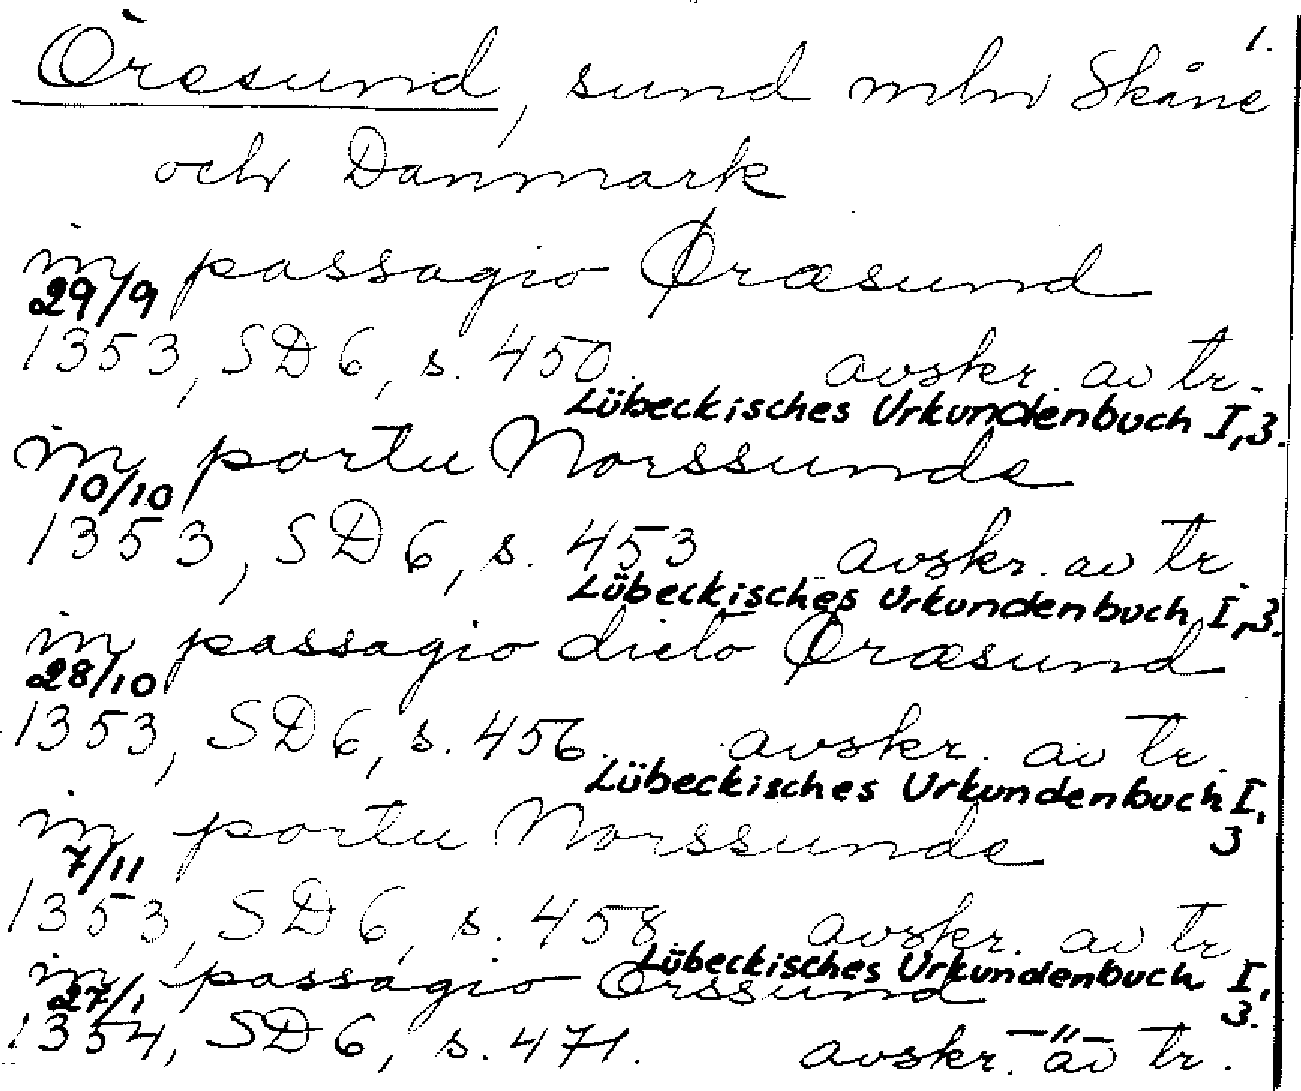 1.
Öresund, sund mln Skåne
och Danmark
in passagio Øræsund
29/9
1353, SD 6, s. 450. avskr. av tr.
Lübeckisches Urkundenbuch I,3.
in portu Norssunde
10/10
1353, SD 6, s. 453 avskr. av tr.
Lübeckisches Urkundenbuch I,3.
in passagio dicto Øræsund
28/10
1353, SD 6, s. 456. avskr. av tr.
Lübeckisches Urkundenbuch I,
3
in portu Norssunde
7/11
1353, SD 6, s. 458 avskr. av tr
Lübeckisches Urkundenbuch I,
3.
in passagio Orssund
27/1
1354, SD 6, s. 471. avskr. av tr.
–"–